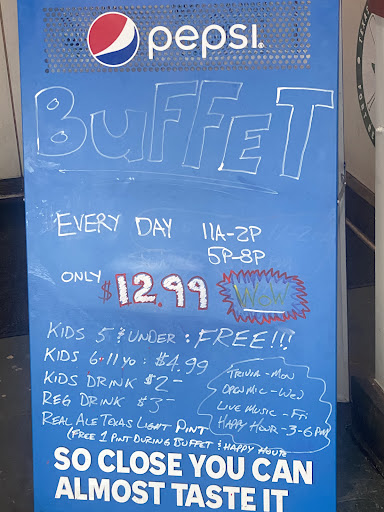 pepsi
BUFFET
EVERY DAY 11A-2P
5P-8P
ONLY $12.99 WOW
KIDS 5 & UNDER: FREE!!!
KIDS 6-11 yo: $4.99
KIDS DRINK $2-
REG DRINK $3-
REAL ALE TEXAS LIGHT PINT
(FREE 1 PINT DURING BUFFET & HAPPY HOUR
TRIVIA - MON
OPEN MIC - WED
LIVE MUSIC - FRI
HAPPY HOUR - 3-6PM
SO CLOSE YOU CAN
ALMOST TASTE IT